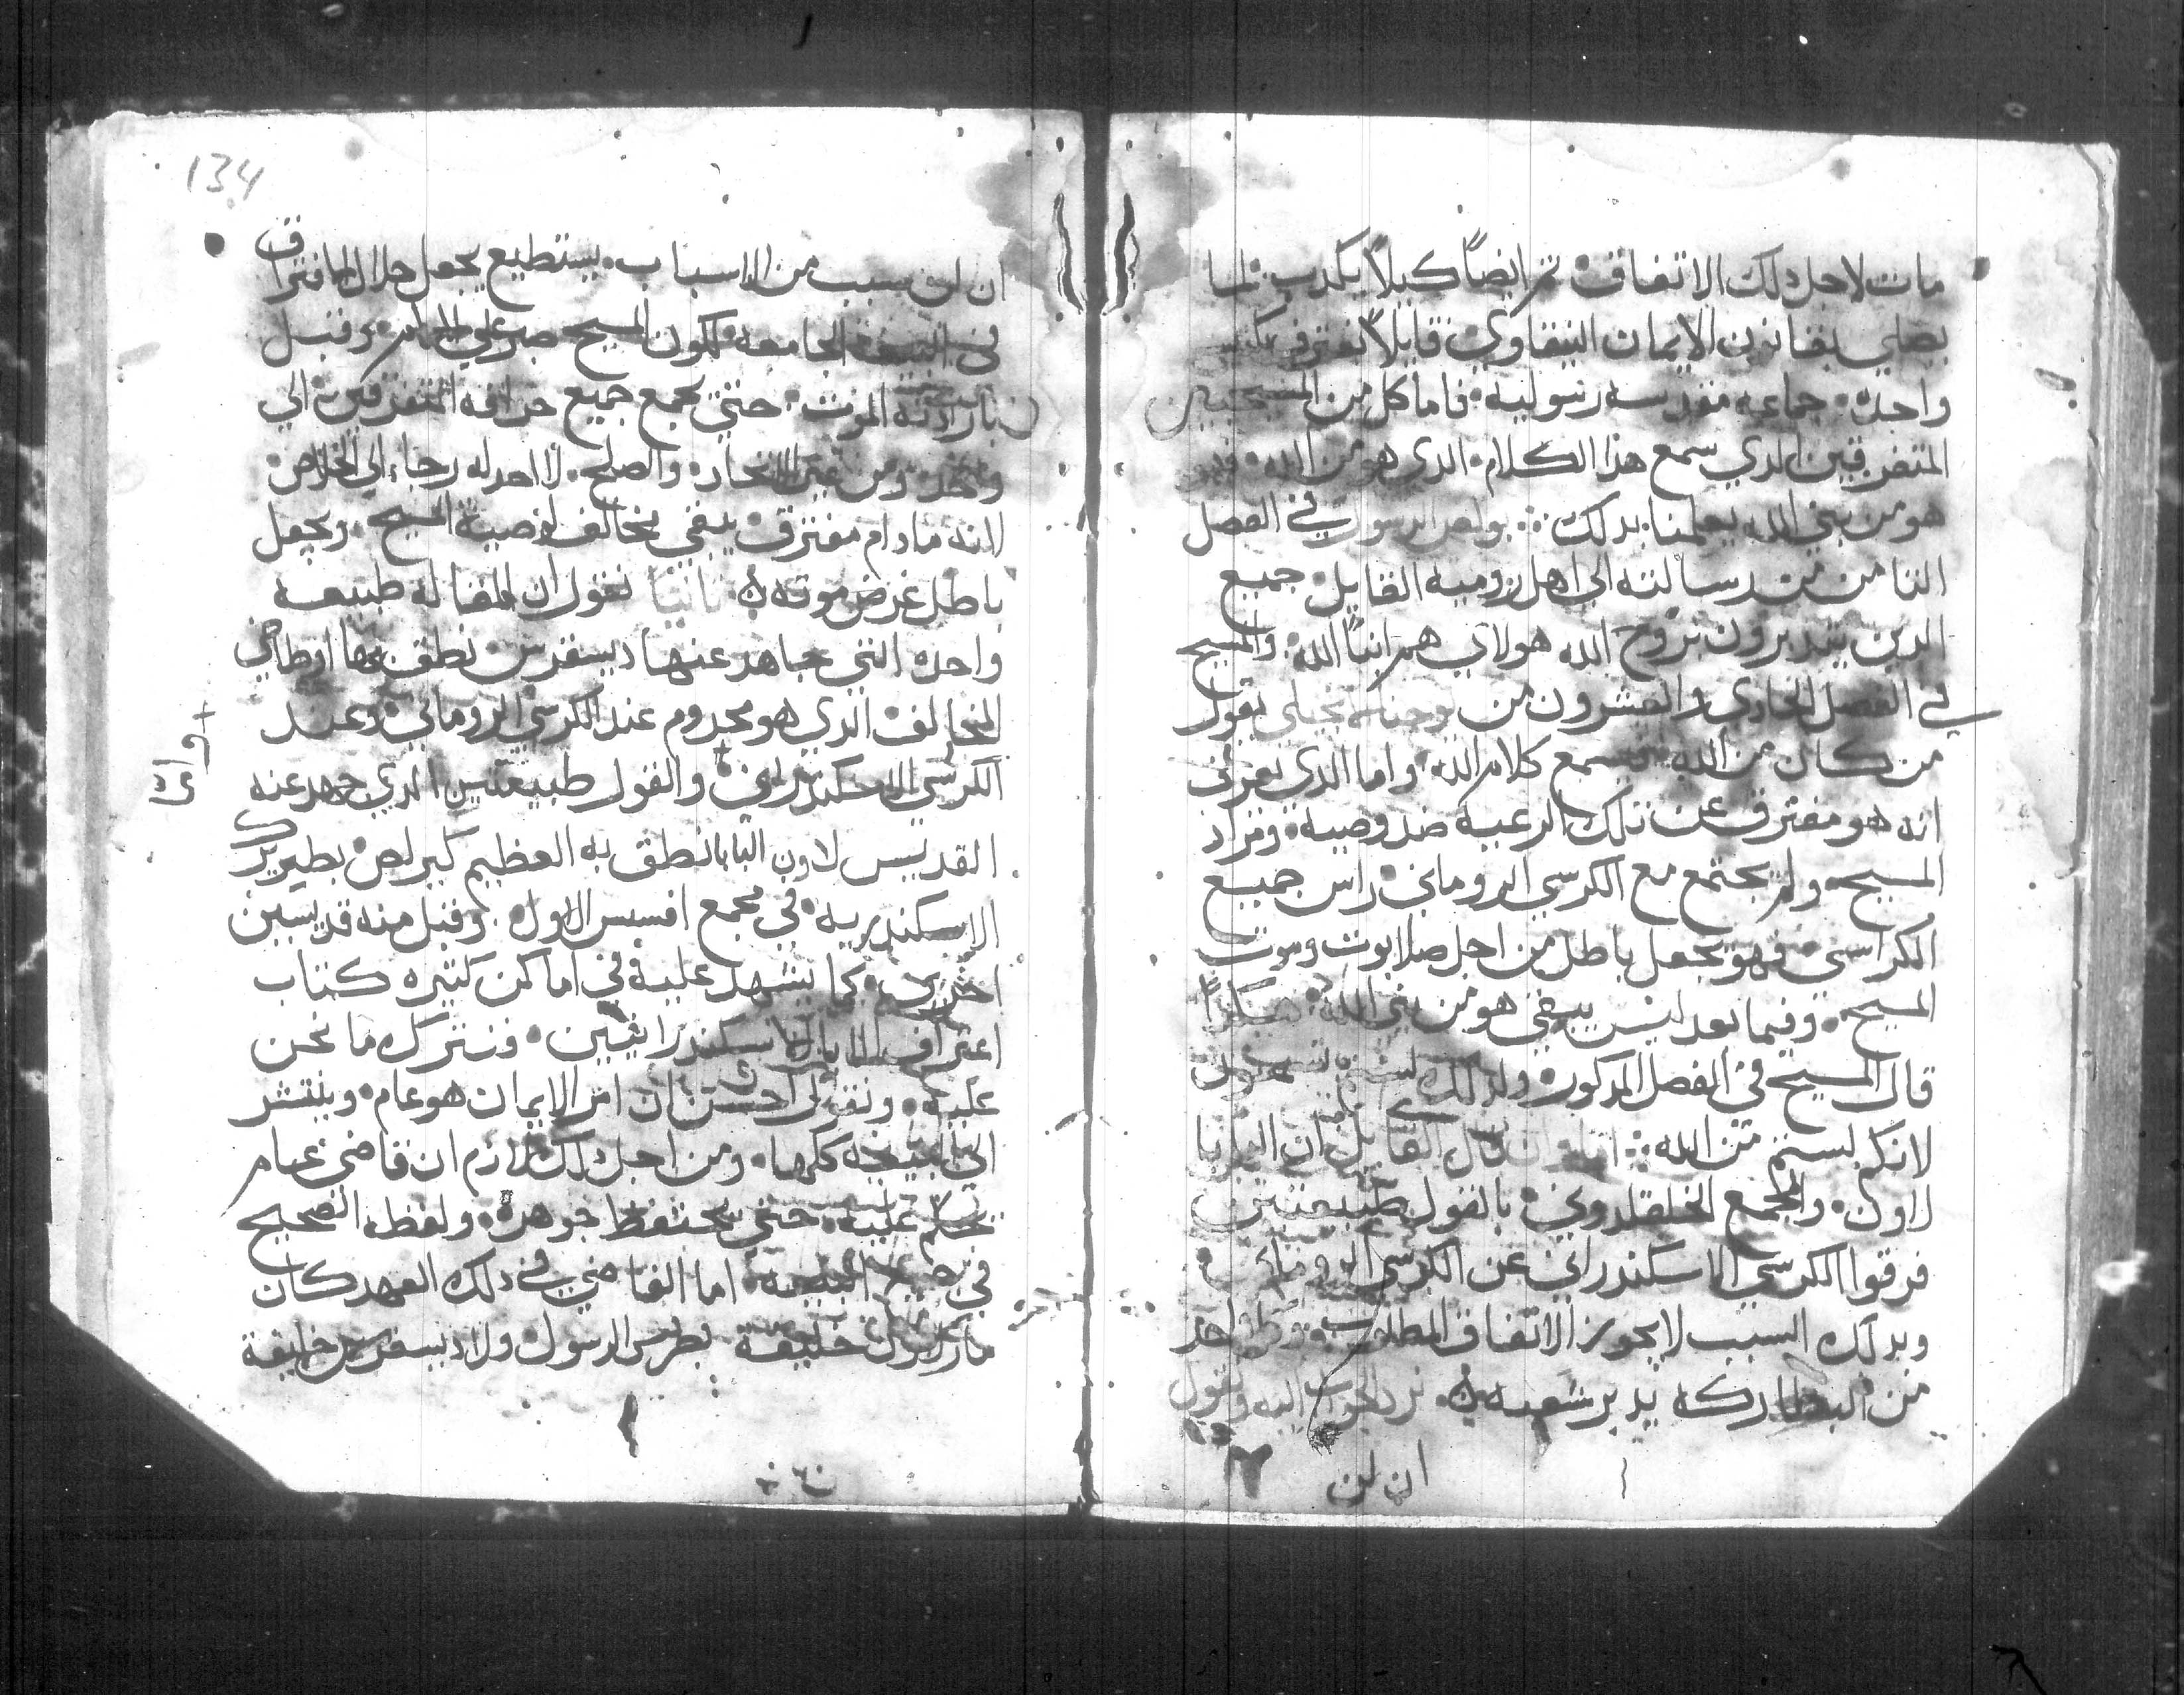 مات لاجل دلك الاتفاق تم ايضاً كيلا يكدب لما
بصلي بقانون الايمان النيقاوي قايلا نعترف بكنيسه
واحده جماعيه مقدسه رسوليه فاما كل من المسيحيين
المتفرقين الدي سمع هذا الكلام الدي هو من الله فهو
هو من بني الله يعلمنا بدلك بولص الرسول في الفصل
التامن من رسالته الي اهل روميه القايل جميع
الدين يتدبرون بروح الله هولاي هم ابنا الله والمسيح
في الفصل الحادي والعشرون من يوحنا يقول
من كان من الله يسمع كلام الله واما الدي يعرف
انه هو مفترق عن تلك الرعيه ضد وصيه ومراد
المسيح ولم يجتمع مع الكرسي الروماني راس جميع
الكراسي فهو يجعل باطل من اجل صلابوت وموت
المسيح وفيما بعد ليس يبقي هو من بني الله هكدا
قال المسيح في الفصل المدكور ولدلك لستم تسمعون
لانكم لستم من الله قال القايل ان البابا
لاون والمجمع الخلقدوني بالقول طبيعتين
فرقوا الكرسي الاسكندراني عن الكرسي الروماني
وبدلك السبب لا يجوز الاتفاق المطلوب وكلواحد
من البطاركه يدبر شعبه نرد الجواب اليه ونقول
ان لن
134
ان لن سبب من الاسباب يستطيع يجعل حلال الافتراق
في البيعه الجامعه لكون المسيح صبر علي الالام وقبل
بارادته الموت حتي يجمع جميع خرافه المتفرقين الي
واحد ومن غير الاتحاد والصلح لا احد له رجا الي الخلاص
لانه مادام مفترق يبقي يخالف لوصية المسيح ويجعل
باطل غرض موته تانيا نقول ان المقاله طبيعه
واحده التي جاهد عنها ديسقرس نطق بها اوطاخي
المخالف الدي هو محروم عند الكرسي الروماني وعند
الكرسي الاسكندراني والقول طبيعتين الدي جهد عنه
القديس لاون البابا نطق به العظيم كيرلص بطيريرك
الاسكندريه في مجمع افسس الاول وقبل منه قديسين
اخرين كما يشهد عليه في اماكن كتيره كتاب
اعتراف الابا الاسكندرانيين ونترك ما نحن
عليه ونقول احسن ان امر الايمان هو عام وينتشر
الي البيعه كلها ومن اجل دلك لازم ان قاضي عام
يحكم عليه حتي يحتفظ جوهره ولفظه الصحيح
في جميع البيعه اما القاضي في دلك العهد كان
مار لاون خليفة بطرس الرسول ولا ديسقرس خليفة